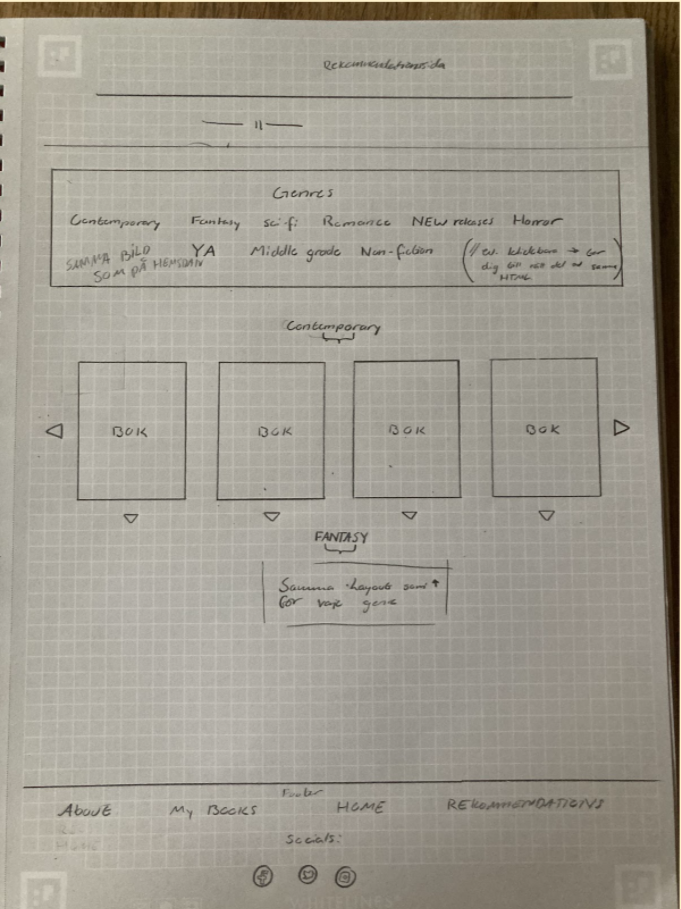 Rekommendationssida
— 11 —
Genres
Contemporary Fantasy sci-fi Romance NEW releases Horror
YA Middle grade Non-fiction
SAMMA BILD
SOM PÅ HEMSIDAN
(// ev. klickbara → tar
dig till rätt del av samma
HTML)
Contemporary
BOK BOK BOK BOK
FANTASY
Samma Layout som ↑
för varje genre
Footer
ABOUT My BOOKS HOME REKOMMENDATIONS
Socials:
WHITELINES